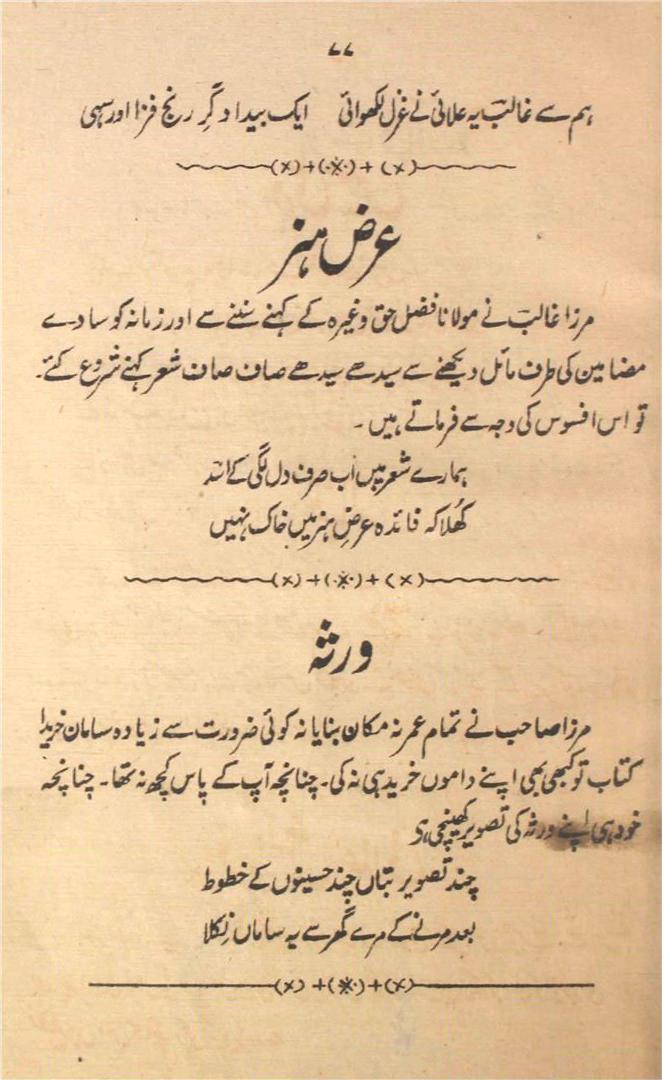 ۷۷
ہم سے غالبؔ یہ علائی نے غزل لکھوائی ایک بیداد گرِ رنج فزا اور سہی
عرض ہنر
مرزا غالبؔ نے مولانا فضل حق وغیرہ کے کہنے سننے سے اور زمانہ کو سادے
مضامین کی طرف مائل دیکھنے سے سیدھے سیدھے صاف صاف شعر کہنے شروع کئے۔
تو اس افسوس کی وجہ سے فرماتے ہیں۔
ہمارے شعر ہیں اب صرف دل لگی کے اسدؔ
کُھلا کہ فائدہ عرضِ ہنر میں خاک نہیں
ورثہ
مرزا صاحب نے تمام عمر نہ مکان بنایا نہ کوئی ضرورت سے زیادہ سامان خریدا
کتاب تو کبھی بھی اپنے داموں خرید ہی نہ کی۔ چنانچہ آپ کے پاس کچھ نہ تھا۔ چنانچہ
خود ہی اپنے ورثہ کی تصویر کھینچی ہی
چند تصویر بتاں چند حسینوں کے خطوط
بعد مرنے کے مرے گھر سے یہ ساماں نِکلا